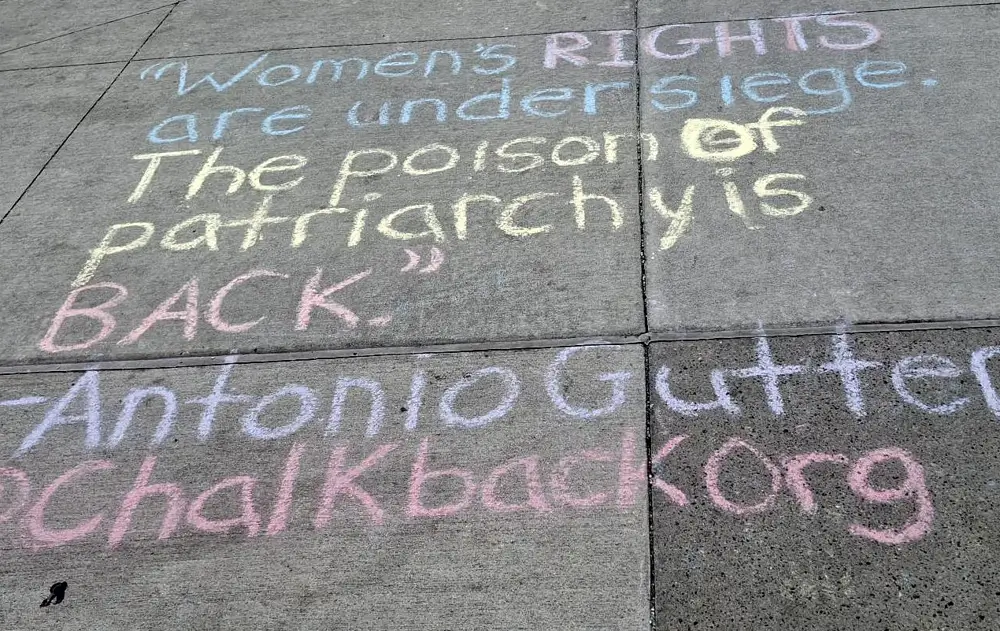 "Women's RIGHTS
are under siege.
The poison of
patriarchy is
BACK."
-Antonio Gutter
@ChalkbackOrg